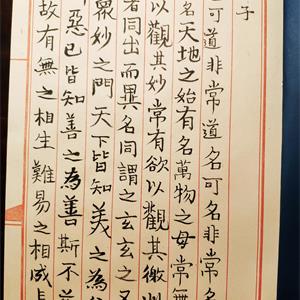 子
可道非常道名可名非常名
名天地之始有名萬物之母常無
以觀其妙常有欲以觀其徼
者同出而異名同謂之玄玄之又
眾妙之門天下皆知美之為
惡已皆知善之為善斯不
故有無之相生難易之相成